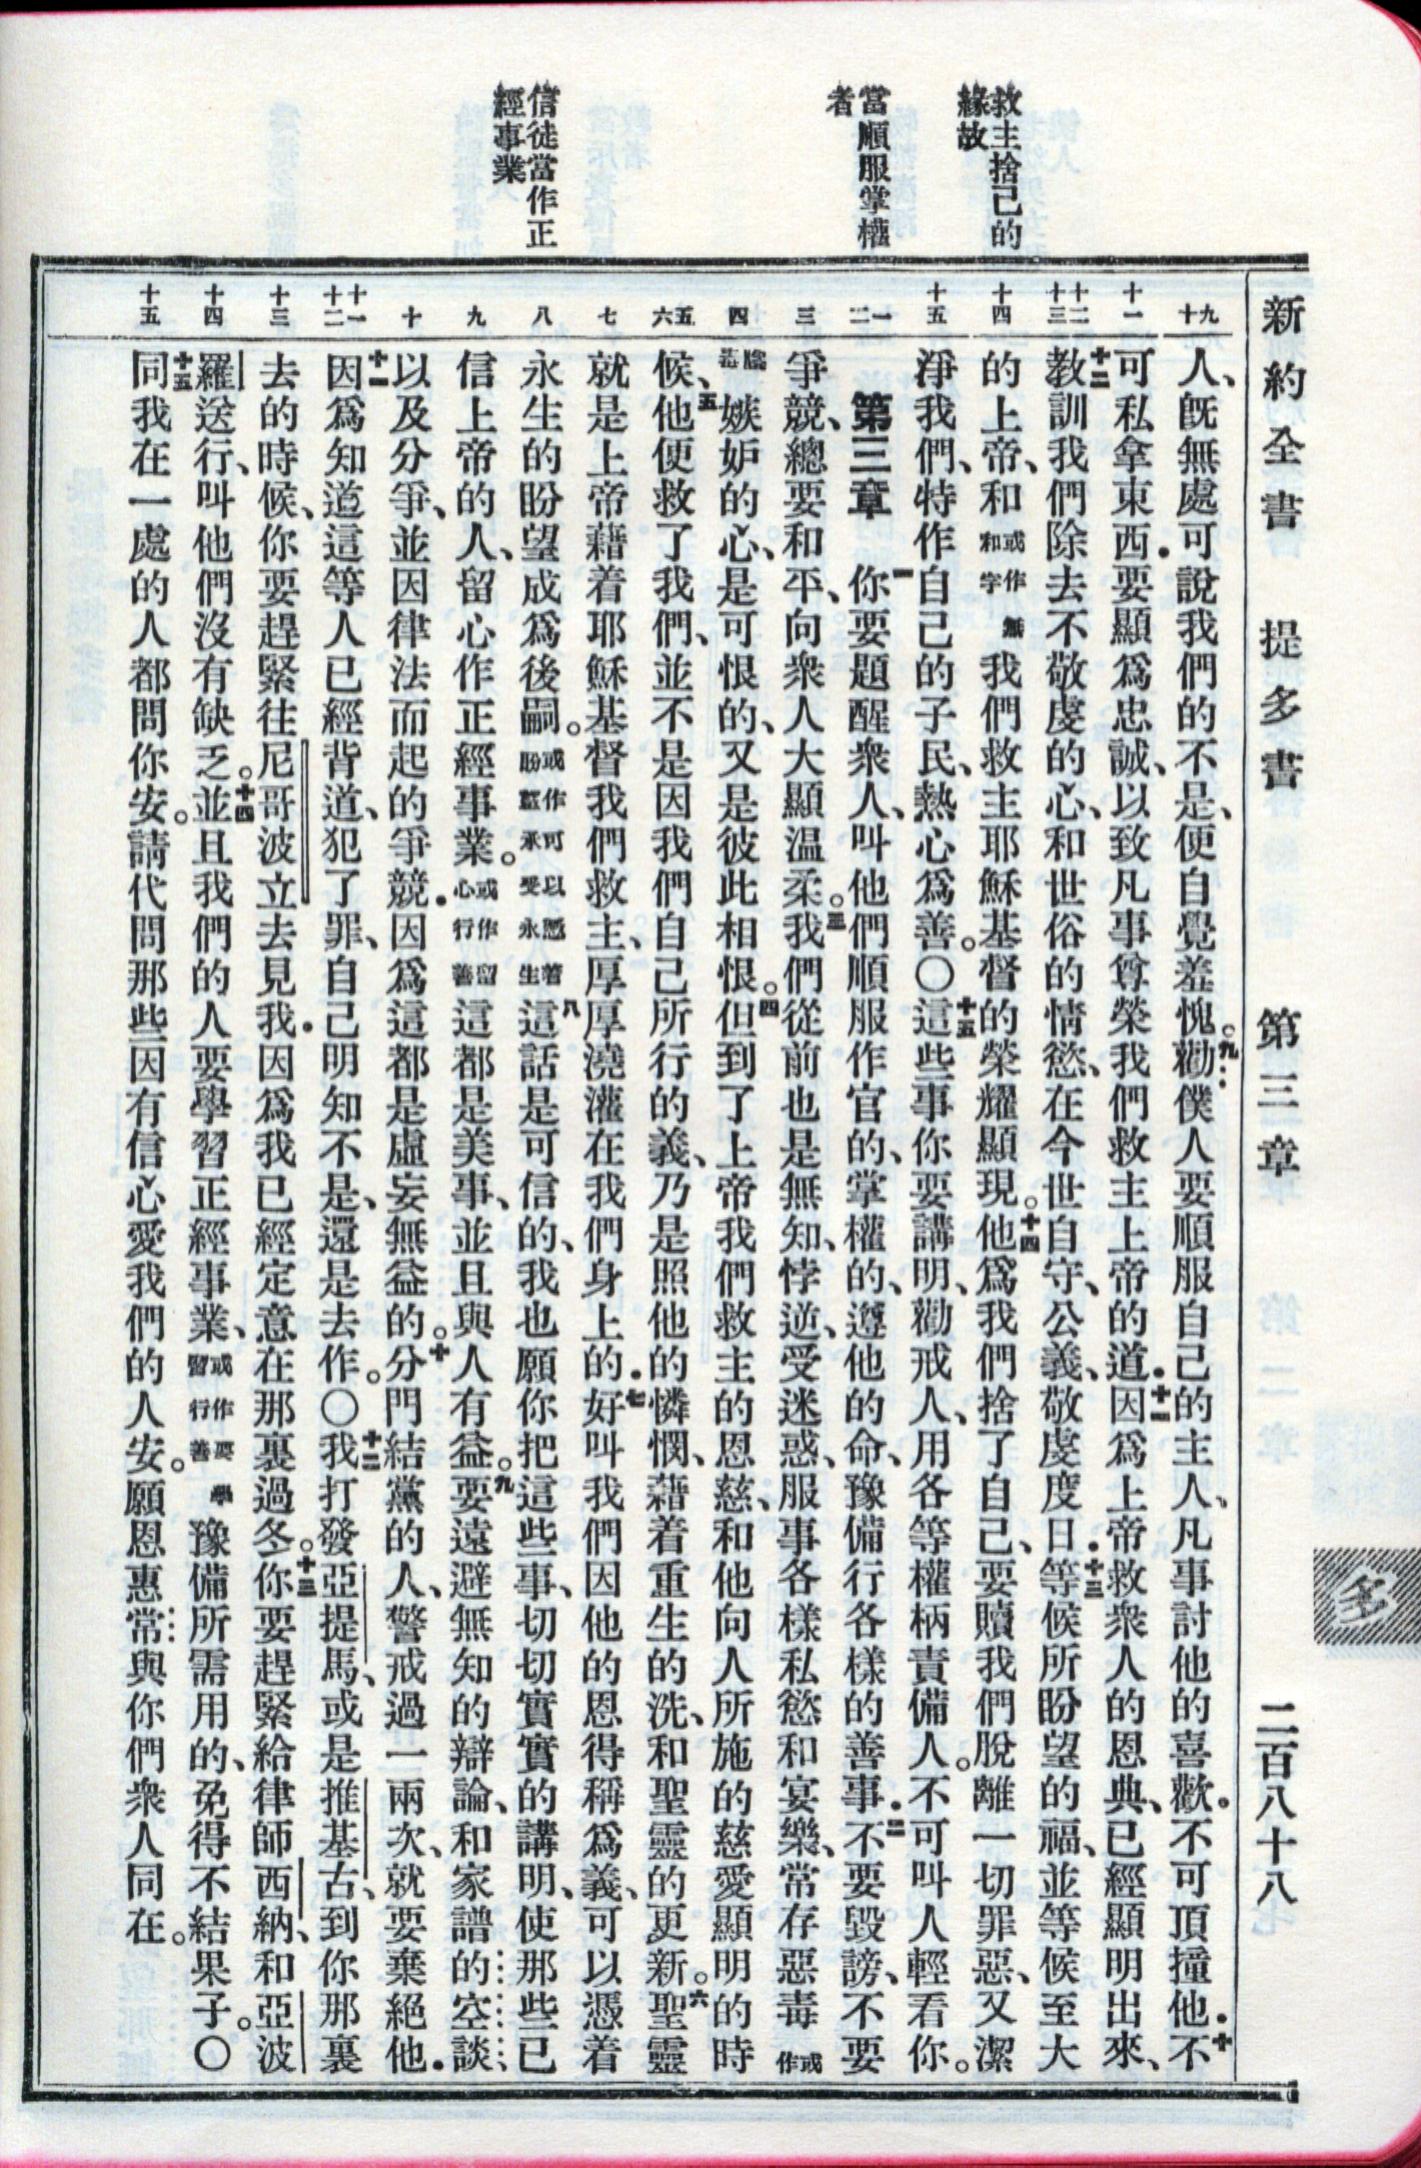 新約全書 提多書 第三章 二百八十八
多
救主捨己的
緣故
當順服掌權
者
信徒當作正
經事業
九
十
十一
十二
十三
十四
十五
一
二
三
四
五
六
七
八
九
十
十一
十二
十三
十四
十五
人、旣無處可說我們的不是、便自覺羞愧。九勸僕人要順服自己的主人、凡事討他的喜歡．不可頂撞他．十不
可私拿東西．要顯爲忠誠、以致凡事尊榮我們救主上帝的道．十一因爲上帝救衆人的恩典、已經顯明出來、
十二教訓我們除去不敬虔的心、和世俗的情慾、在今世自守、公義、敬虔度日．十三等候所盼望的福、並等候至大
的上帝、和或作無和字我們救主耶穌基督的榮耀顯現。十四他爲我們捨了自己、要贖我們脫離一切罪惡、又潔
淨我們、特作自己的子民、熱心爲善。〇十五這些事你要講明、勸戒人、用各等權柄責備人。不可叫人輕看你。
第三章 一你要題醒衆人、叫他們順服作官的、掌權的、遵他的命、豫備行各樣的善事．二不要毀謗、不要
爭競、總要和平、向衆人大顯温柔。三我們從前也是無知、悖逆、受迷惑、服事各樣私慾和宴樂、常存惡毒或作
陰毒嫉妒的心、是可恨的、又是彼此相恨。四但到了上帝我們救主的恩慈、和他向人所施的慈愛顯明的時
候、五他便救了我們、並不是因我們自己所行的義、乃是照他的憐憫、藉着重生的洗、和聖靈的更新。六聖靈
就是上帝藉着耶穌基督我們救主、厚厚澆灌在我們身上的．七好叫我們因他的恩得稱爲義、可以憑着
永生的盼望成爲後嗣。或作可以憑着盼望承受永生八這話是可信的、我也願你把這些事、切切實實的講明、使那些已
信上帝的人、留心作正經事業。或作留心行善這都是美事、並且與人有益。九要遠避無知的辯論、和家譜的空談、
以及分爭、並因律法而起的爭競．因爲這都是虛妄無益的。十分門結黨的人、警戒過一兩次、就要棄絕他．
十一因爲知道這等人已經背道、犯了罪、自己明知不是、還是去作。〇十二我打發亞提馬、或是推基古、到你那裏
去的時候、你要趕緊往尼哥波立去見我．因爲我已經定意在那裏過冬。十三你要趕緊給律師西納、和亞波
羅送行、叫他們沒有缺乏。十四並且我們的人要學習正經事業、或作要學習行善豫備所需用的、免得不結果子。〇
十五同我在一處的人都問你安。請代問那些因有信心愛我們的人安。願恩惠常與你們衆人同在。